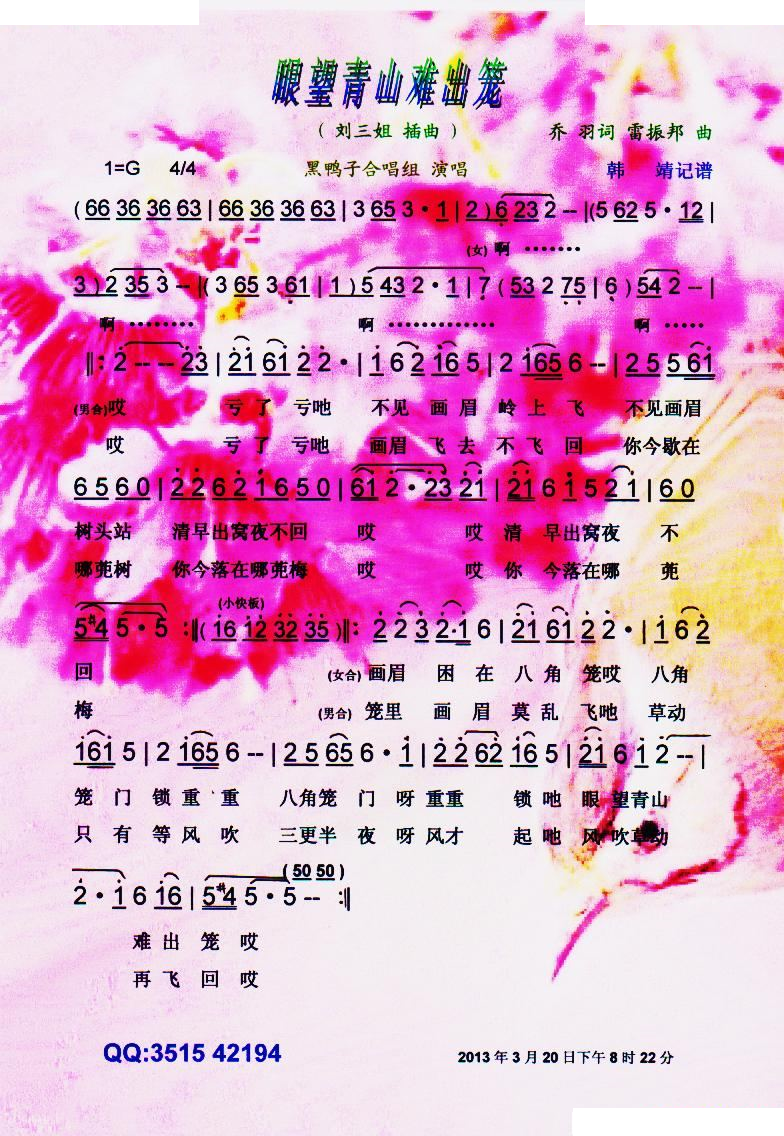 眼望青山难出笼
（刘三姐 插曲） 乔 羽词 雷振邦 曲
1=G 4/4 黑鸭子合唱组 演唱 韩 靖记谱
( 66 36 36 63 | 66 36 36 63 | 3 65 3 · 1 | 2 ) 6 23 2 -- |(5 62 5 · 12 |
(女) 啊 ·······
3 ) 2 35 3 -- |( 3 65 3 61 | 1 ) 5 43 2 · 1 | 7 ( 53 2 75 | 6 ) 54 2 -- |
啊 ········ 啊 ············· 啊 ·····
‖: 2 -- -- 23 | 21 61 2 2 · | 1 6 2 16 5 | 2 165 6 -- | 2 5 5 61
(男合)哎 亏 了 亏吔 不见 画 眉 岭 上 飞 不见画眉
哎 亏 了 亏吔 画眉 飞 去 不 飞 回 你今歇在
6 5 6 0 | 2 2 6 2 1 6 5 0 | 61 2 · 23 21 | 21 6 1 5 2 1 | 6 0
树头站 清早出窝夜不回 哎 哎 清 早出窝夜 不
哪蔸树 你今落在哪蔸梅 哎 哎 你 今落在哪 蔸
(小快板)
5#4 5 · 5 :‖( 16 12 32 35 )‖: 2 2 3 2·1 6 | 21 61 2 2 · | 1 6 2
回 (女合) 画眉 困 在 八 角 笼哎 八角
梅 (男合) 笼里 画 眉 莫 乱 飞吔 草动
161 5 | 2 165 6 -- | 2 5 65 6 · 1 | 2 2 62 16 5 | 21 6 1 2 -- |
笼 门 锁 重 重 八角笼 门 呀 重重 锁 吔 眼 望青山
只 有 等 风 吹 三更半 夜 呀 风才 起 吔 风 吹草动
( 50 50 )
2 · 1 6 16 | 5#4 5 · 5 -- :‖
难 出 笼 哎
再 飞 回 哎
QQ:3515 42194 2013 年 3 月 20 日下午 8 时 22 分